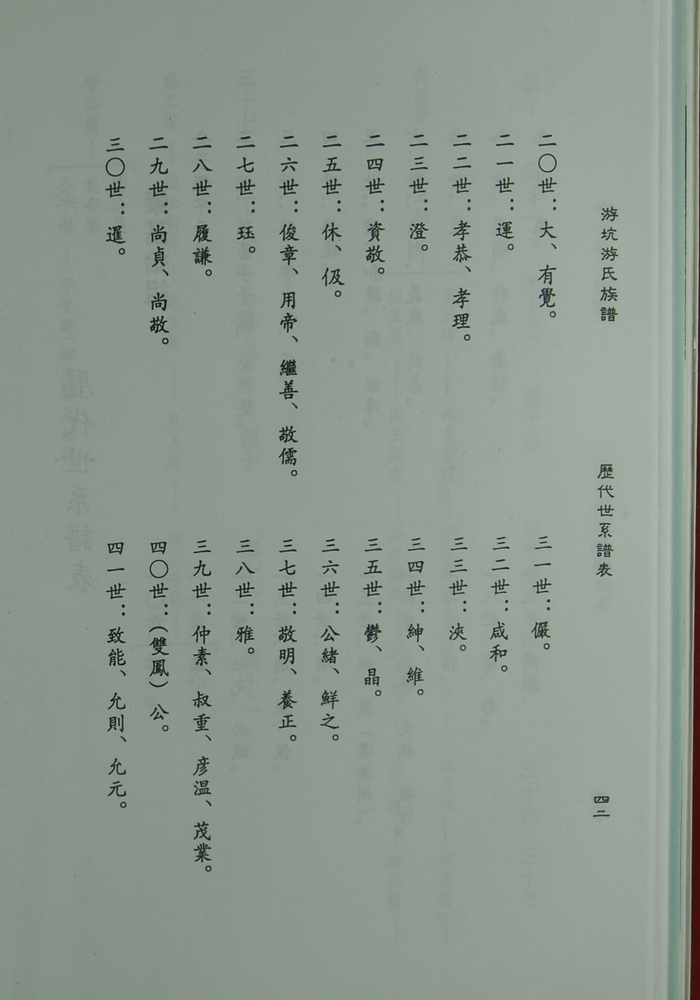 游坑游氏族譜
歷代世系譜表
四二
二〇世：大、有覺。
二一世：運。
二二世：孝恭、孝理。
二三世：澄。
二四世：資敬。
二五世：休、伋。
二六世：俊章、用帝、繼善、敬儒。
二七世：珏。
二八世：履謙。
二九世：尚貞、尚敬。
三〇世：暹。
三一世：儼。
三二世：咸和。
三三世：浹。
三四世：紳、維。
三五世：鬱、晶。
三六世：公緒、鮮之。
三七世：敬明、養正。
三八世：雅。
三九世：仲素、叔重、彦温、茂業。
四〇世：（雙鳳）公。
四一世：致能、允則、允元。